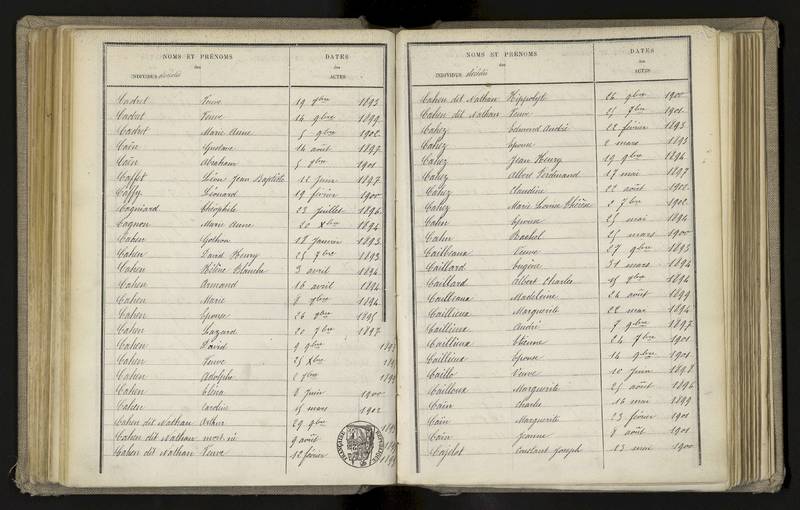 NOMS ET PRÉNOMS
des
INDIVIDUS décédés
DATES
des
ACTES
Cadret Veuve 19 1893
Cadret Veuve 14 9bre 1899
Cadret Marie Anne 5 9bre 1902
Caën Gustave 14 août 1897
Caën Abraham 5 1901
Caffet Léon Jean Baptiste 12 Juin 1897
Caffy Léonard 19 février 1900
Cagniard Théophile 23 Juillet 1896
Cagnon Marie Anne 20 Xbre 1894
Cahen Gothon 18 Janvier 1893
Cahen David Henry 25 7bre 1893
Cahen Hélène Blanche 3 avril 1894
Cahen Armand 16 avril 1894
Cahen Marie 8 1894
Cahen épouse 26 9bre 1895
Cahen Lazard 20 7bre 1897
Cahen David 9 9bre
Cahen Veuve 25 Xbre
Cahen Adolphe
Cahen Eléna 6 Juin 1900
Cahen Caroline 15 mars 1902
Cahen dit Nathan Arthur 29 9bre
Cahen dit Nathan mort né 9 août
Cahen dit Nathan Veuve 12 février
NOMS ET PRÉNOMS
des
INDIVIDUS décédés
DATES
des
ACTES
Cahen dit Nathan Hippolyte 26 9bre 1900
Cahen dit Nathan Veuve 25 7bre 1901
Cahez Edmond André 22 février 1893
Cahez épouse 2 mars 1893
Cahez Jean Henry 19 9bre 1894
Cahez Albert Ferdinand 17 mai 1897
Cahez Claudine 22 août 1902
Cahez Marie Louise Thérèse 2 7bre 1902
Cahn épouse 25 mai 1894
Cahn Rachel 25 mars 1900
Cailleaux Veuve 27 9bre 1893
Caillard Eugène 31 mars 1894
Caillard Albert Charles 15 1894
Cailliaux Madeleine 26 août 1899
Caillieux Marguerite 22 mai 1894
Caillieux André 7 9bre 1897
Caillieux Etienne 24 7bre 1901
Caillieux épouse 14 9bre 1901
Caillo Veuve 10 Juin 1898
Cailloux Marguerite 25 août 1896
Cain Charles 16 mai 1899
Caïn Marguerite 23 février 1901
Caïn Jeanne 8 août 1901
Cajdot Constant Joseph 13 mai 1900